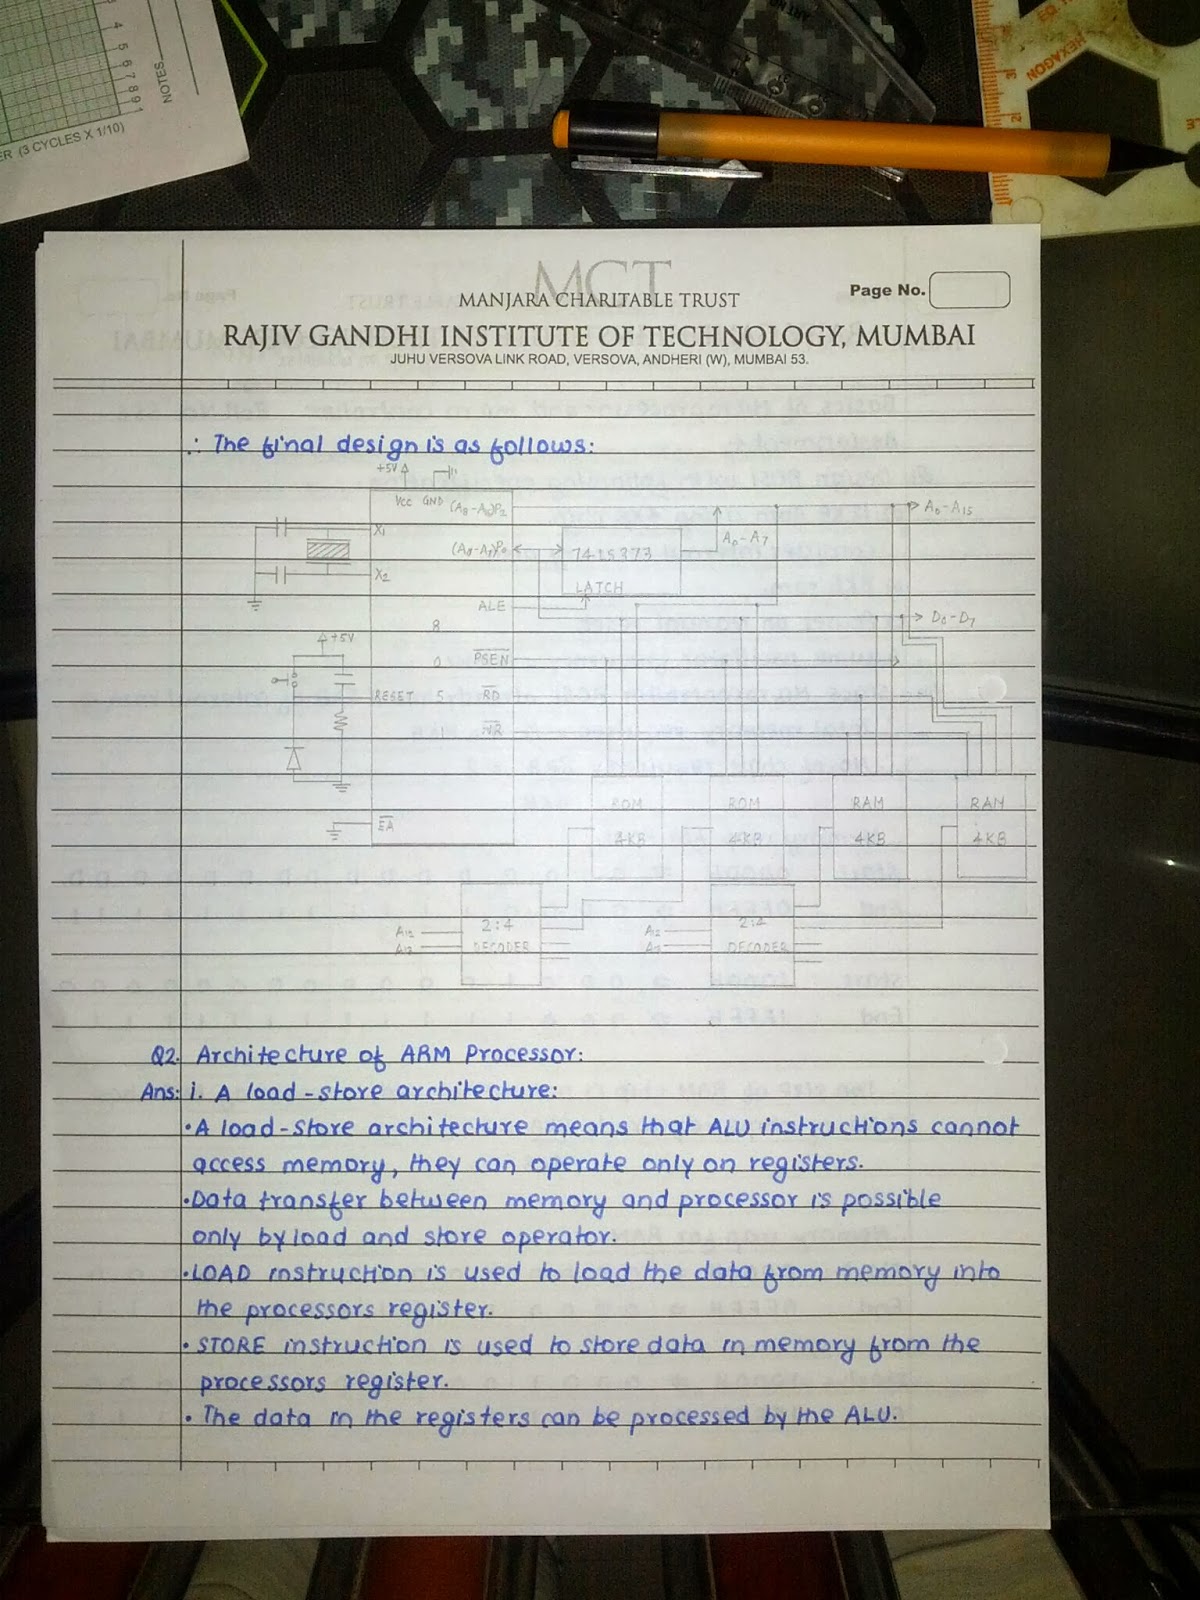 4 5 6 7 8 9 1
NOTES
ER (3 CYCLES X 1/10)
HEXAGON
MCT
MANJARA CHARITABLE TRUST
Page No.
RAJIV GANDHI INSTITUTE OF TECHNOLOGY, MUMBAI
JUHU VERSOVA LINK ROAD, VERSOVA, ANDHERI (W), MUMBAI 53.
∴ The final design is as follows:
+5V
Vcc GND
A0-A15
X1
A0-A7
74LS373
X2
LATCH
ALE
D0-D7
8
+5V
0 PSEN
RESET 5 RD
1 WR
ROM ROM RAM RAM
EA
4KB 4KB 4KB 4KB
2:4 2:4
A12 A12
DECODER DECODER
A13
Q2. Architecture of ARM Processor:
Ans: i. A load-store architecture:
• A load-store architecture means that ALU instructions cannot
access memory, they can operate only on registers.
• Data transfer between memory and processor is possible
only by load and store operator.
• LOAD instruction is used to load the data from memory into
the processors register.
• STORE instruction is used to store data in memory from the
processors register.
• The data in the registers can be processed by the ALU.